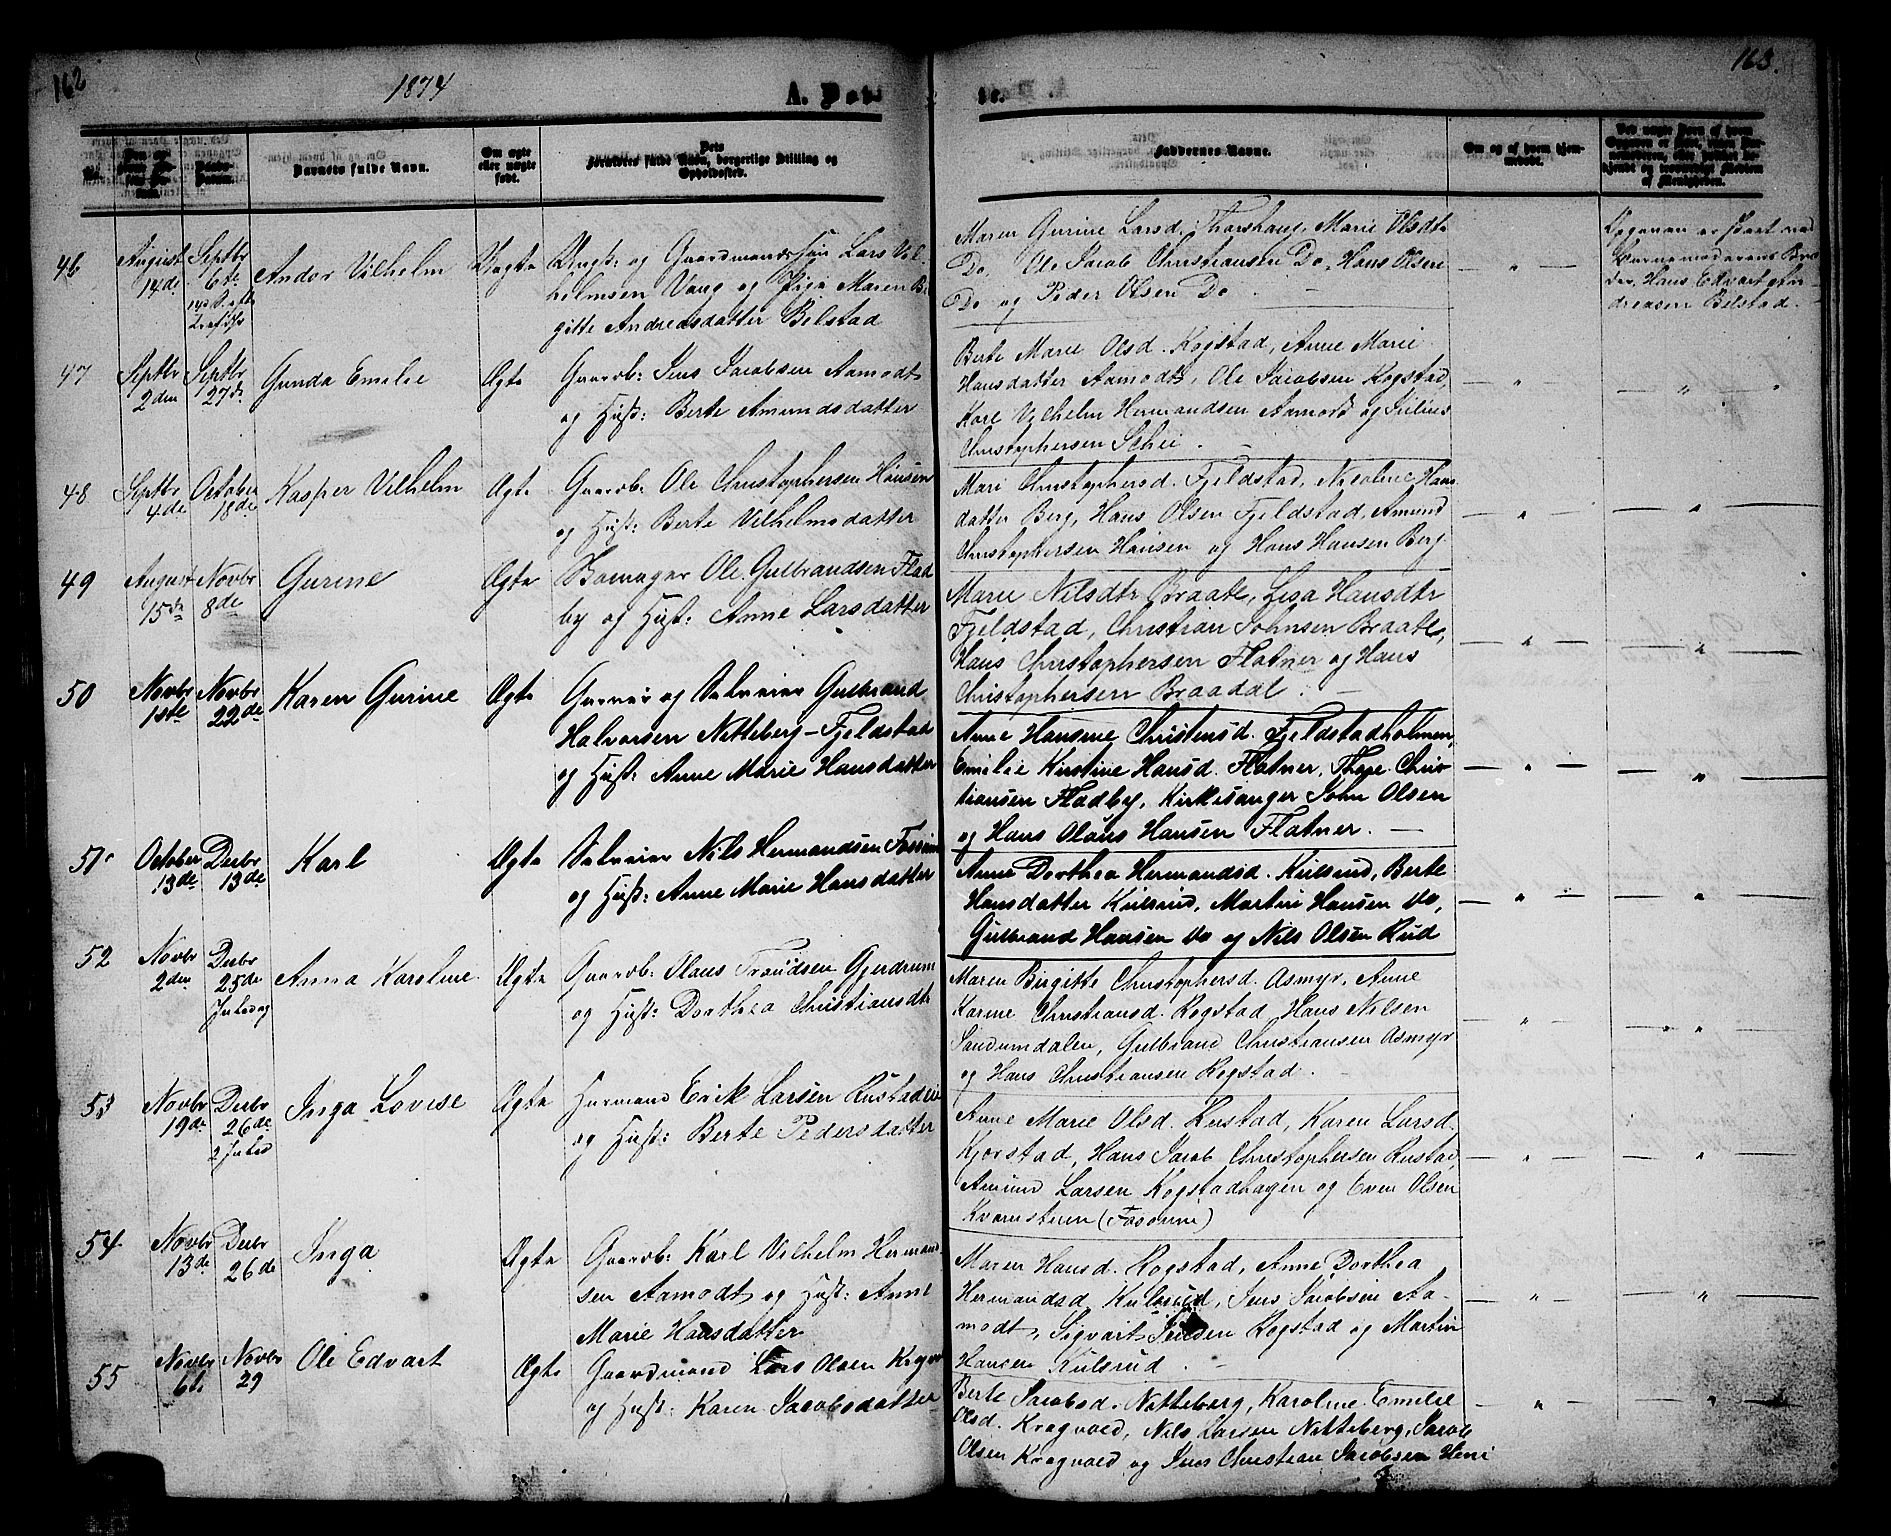 162
1874
A. Døb-
te.
163.
Barnets fulde Navn.
Om ægte
eller uægte
født.
Forældres fulde Navn, borgerlige Stilling og
Opholdssted.
Faddernes Navne.
Om og af hvem hjem-
medøbt.
46
August
14de
Septbr
6te
Andor Vilhelm
Uægte
Ungk: og Gaardmandssøn Lars Vil-
helmsen Vang og Pige Maren Bir-
gitte Andreasdatter Bilstad
Maren Gurine Larsd. Thorshaug, Marie Olsdtr
Do, Ole Jacob Christiansen Do, Hans Olsen
Do og Peder Olsen Do
— " —
Barnemoderens Bro-
der, Hans Edvart An-
dreasen Bilstad.
47
Septbr
2den
Septbr
27de
Gunda Emilie
Ægte
Gaardb: Jens Jacobsen Aamodt
og Hust: Berte Amundsdatter
Berte Marie Olsd. Kogstad, Anne Marie
Hansdatter Aamodt, Ole Jacobsen Kogstad,
Karl Vilhelm Hermandsen Aamodt og Julius
Christophersen Schei.
— " —
— " —
48
Septbr
4de
October
18de
Kasper Vilhelm
Ægte
Gaardb: Ole Christophersen Hansen
og Hust: Berte Vilhelmsdatter
Mari Christophersd. Fjeldstad, Nicoline Hans
datter Berg, Hans Olsen Fjeldstad, Amund
Christophersen Hansen og Hans Hansen Berg.
— " —
— " —
49
August
15de
Novbr
8de
Gurine
Ægte
Ole Gulbrandsen Flad
by og Hust: Anne Larsdatter
Marie Nilsdtr Braate, Lisa Hansdtr
Fjeldstad, Christian Johnsen Braate,
Hans Christophersen Flatner og Hans
Christophersen Braadal.
— " —
— " —
50
Novbr
1ste
Novbr
22de
Karen Gurine
Ægte
Garver og Selveier Gulbrand
Halvorsen Nitteberg-Fjeldstad
og Hust: Anne Marie Hansdatter
Anne Hansine Christensd. Fjeldstadholmen,
Emilie Kirstine Hansd. Flatner, Thore Chris
tiansen Fladby, Kirkesanger John Olsen
og Hans Olaus Hansen Flatner. —
— " —
— " —
51
October
13de
Decbr
13de
Karl
Ægte
Selveier Nils Hermandsen
og Hust: Anne Marie Hansdatter
Anne Dorthea Hermandsd. Kulsrud, Berte
Hansdatter Kulsrud, Martin Hansen Do,
Gulbrand Hansen Do og Nils Olsen Rud
— " —
— " —
52
Novbr
2den
Decbr
25de
Juledag
Anna Karoline
Ægte
Gaardb: Olaus Trondsen Gjerdrum
og Hust: Dorthea Christiansdtr
Maren Birgitte Christophersd. Asmyr, Anne
Karine Christiansd. Kogstad, Hans Nilsen
Sandumdalen, Gulbrand Christiansen Asmyr
og Hans Christiansen Kogstad.
— " —
— " —
53
Novbr
19de
Decbr
26de
2 Juled
Inga Lovise
Ægte
Huusmand Erik Larsen Rustadeie
og Hust: Berte Pedersdatter
Anne Marie Olsd. Rustad, Karen Larsd.
Kjorstad, Hans Jacob Christophersen Rustad,
Amund Larsen Kogstadhagen og Even Olsen
— " —
— " —
54
Novbr
13de
Decbr
26de
Inga
Ægte
Gaardb: Karl Vilhelm Hermand-
sen Aamodt og Hust: Anne
Marie Hansdatter
Maren Hansd. Kogstad, Anne Dorthea
Hermandsd Kulsrud, Jens Jacobsen Aa-
modt, Sigvart Kogstad og Martin
Hansen Kulsrud.
— " —
— " —
55
Novbr
6te
Novbr
29
Ole Edvart
Ægte
Gaardmand Lars Olsen
og Hust: Karen Jacobsdatter
Berte Jacobsd. Nitteberg, Karoline Emilie
Olsd. Kragvold, Nils Larsen Nitteberg, Jacob
Olsen Kragvold og Jens Christian Jacobsen
— " —
— " —